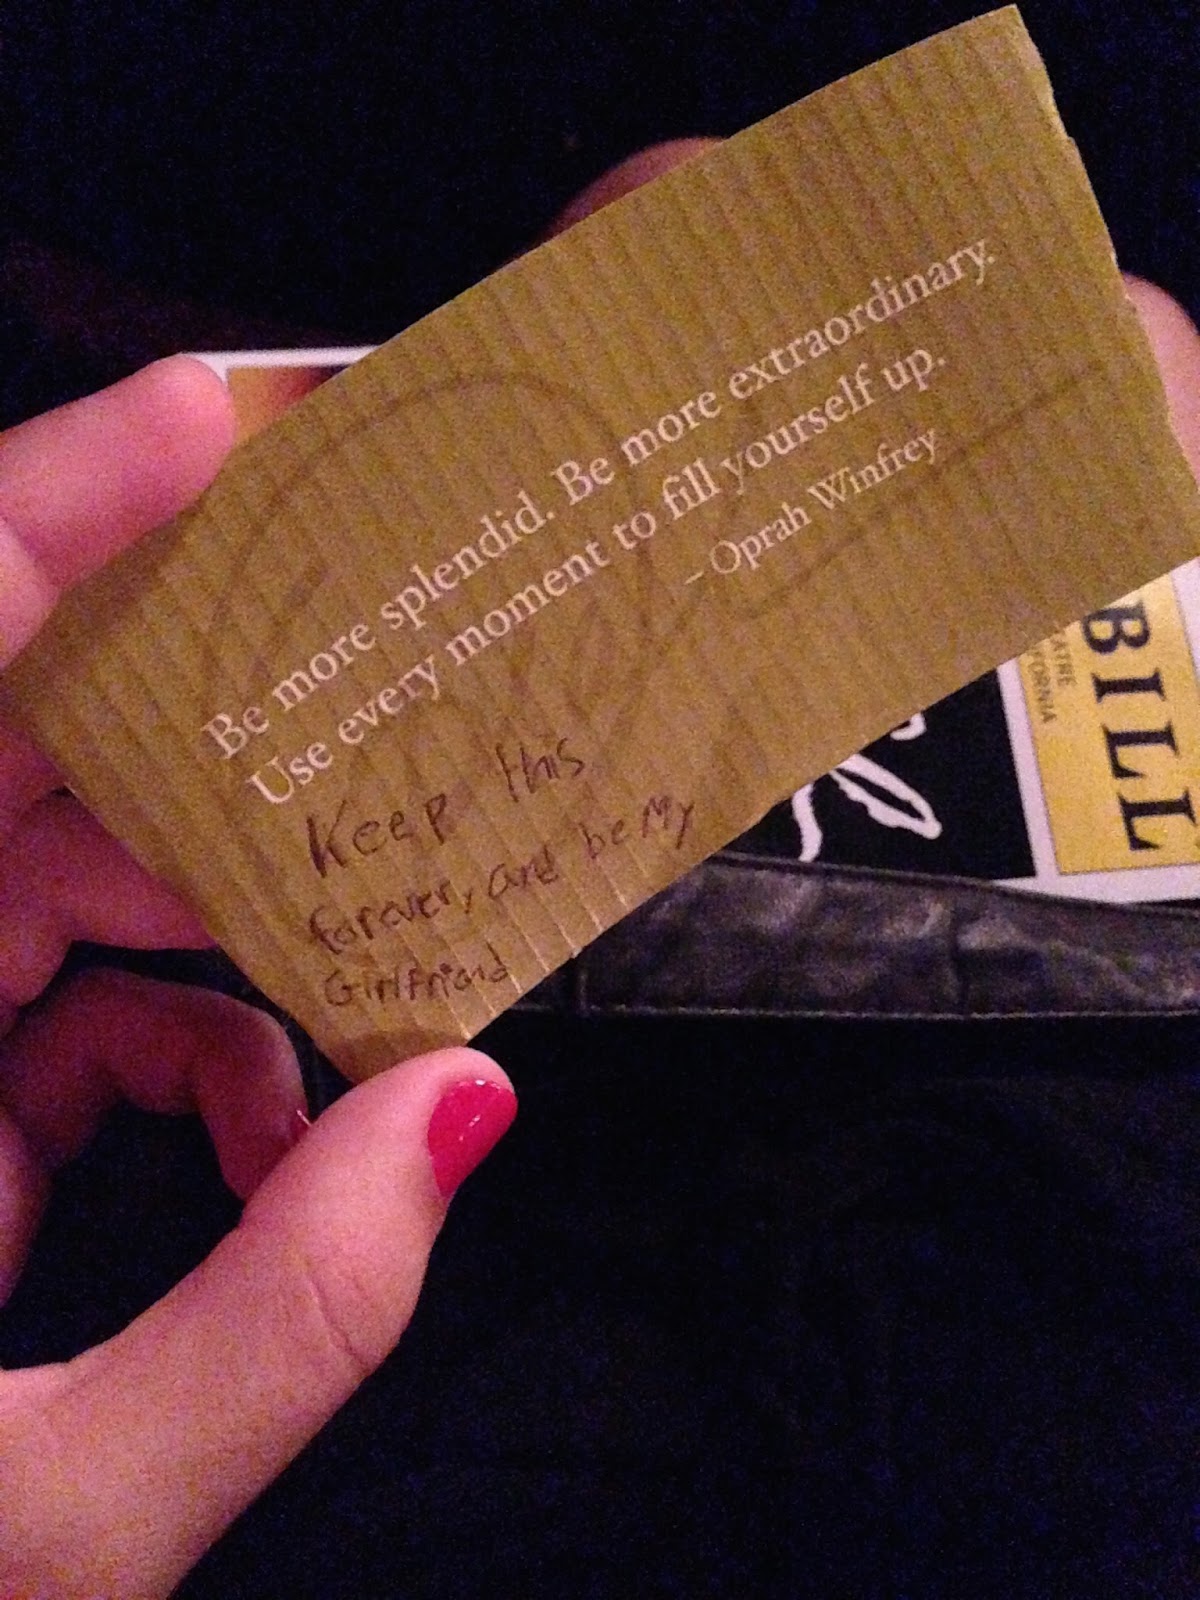 Be more splendid. Be more extraordinary.
Use every moment to fill yourself up.
– Oprah Winfrey
Keep this
forever, and be My
Girlfriend
BILL